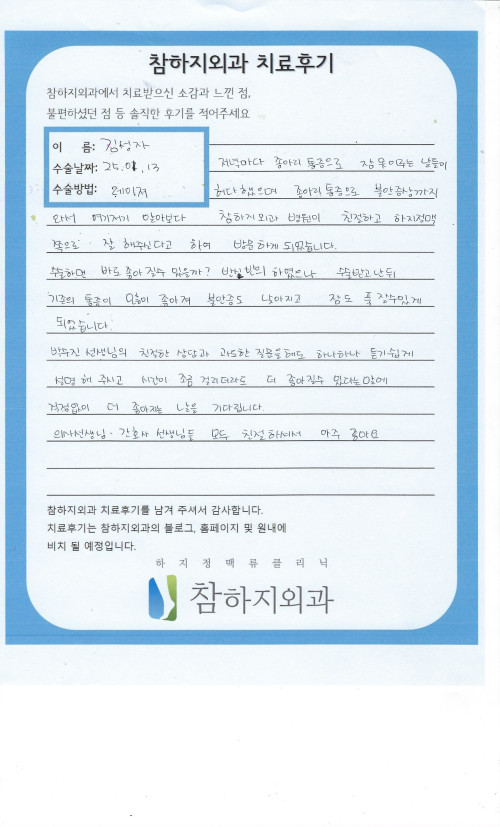 참하지외과 치료후기
참하지외과에서 치료받으신 소감과 느낀 점,
불편하셨던 점 등 솔직한 후기를 적어주세요
이 름: 김성자
수술날짜: 25. 01. 13
수술방법: 레이저
저녁마다 종아리 통증으로 잠 못 이루는 날들이
허다 했으며 종아리 통증으로 불안증상까지
와서 여기저기 알아보다 참하지외과 병원이 친절하고 하지정맥
쪽으로 잘 해주신다고 하여 방문하게 되었습니다.
수술하면 바로 좋아 질수 있을까? 반신반의 하였으나 수술받고난 뒤
기존의 통증이 많이 좋아져 불안증도 낮아지고 잠도 푹 잘수있게
되었습니다.
박수진 선생님의 친절한 상담과 과도한 질문을해도 하나하나 듣기쉽게
설명 해 주시고 시간이 조금 걸리더라도 더 좋아질수 있다는말에
걱정없이 더 좋아지는 날을 기다립니다.
의사선생님·간호사 선생님들 모두 친절하셔서 아주 좋아요
참하지외과 치료후기를 남겨 주셔서 감사합니다.
치료후기는 참하지외과의 블로그, 홈페이지 및 원내에
비치 될 예정입니다.
하지정맥류클리닉
참하지외과